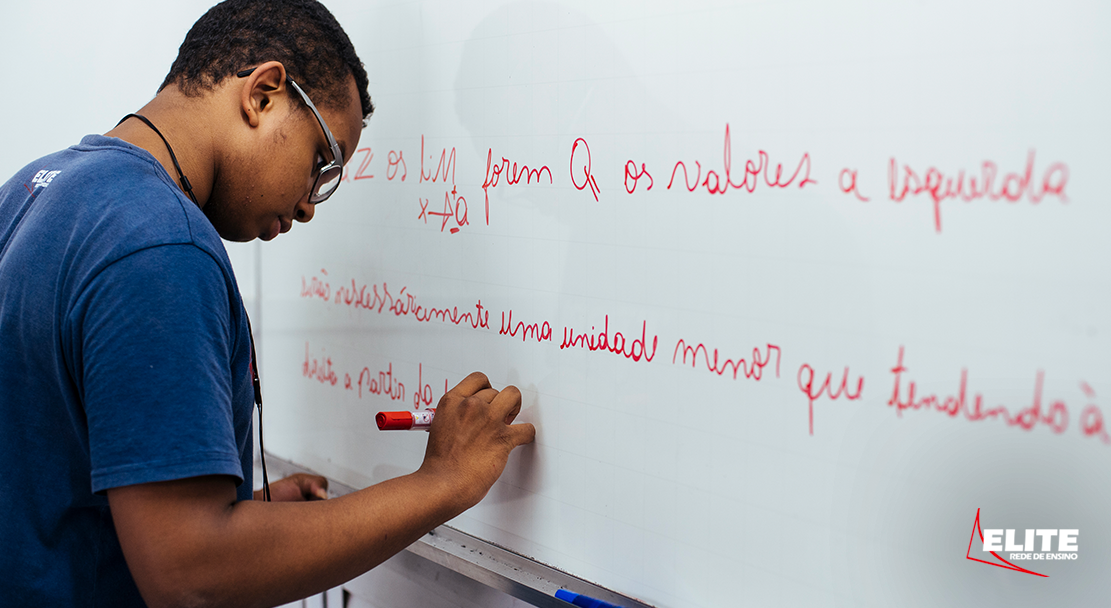 os lim forem Q os valores a esquerda
x→a
serão nescessáriamente uma unidade menor que tendendo à
direita a partir do
ELITE
ELITE
REDE DE ENSINO